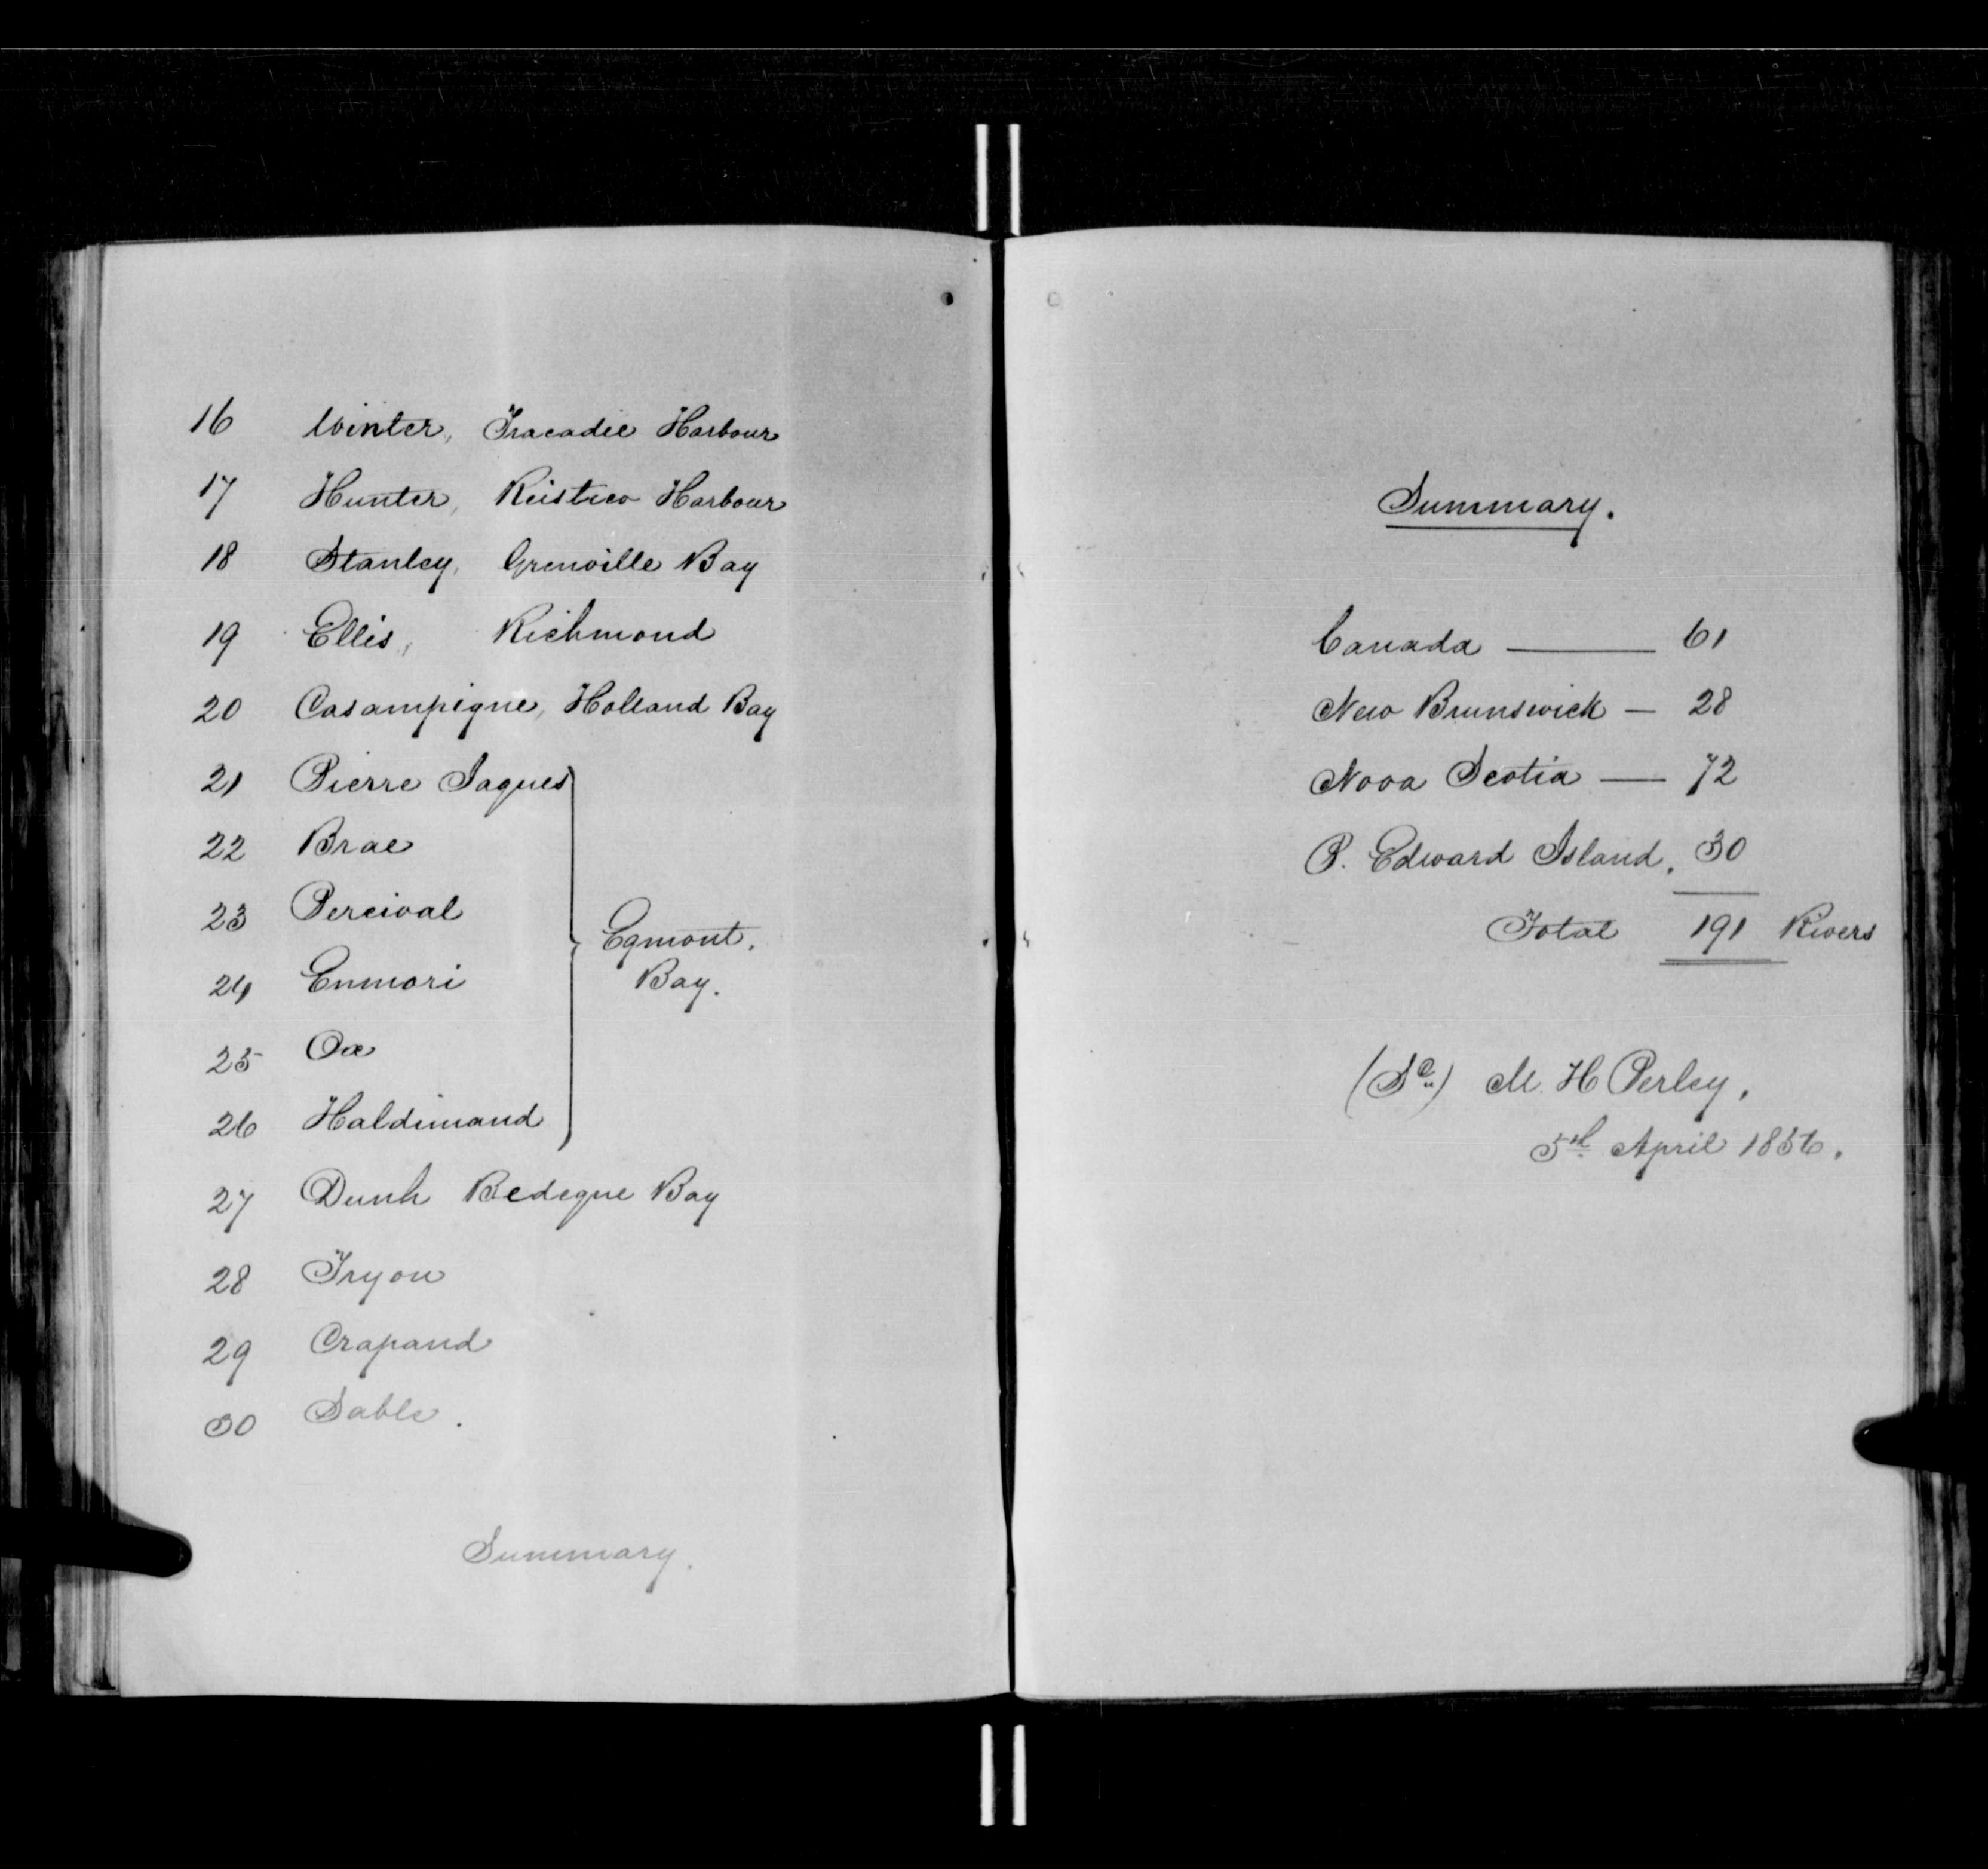 16 Winter, Tracadie Harbour
17 Hunter, Rustico Harbour
18 Stanley, Grenville Bay
19 Ellis, Richmond
20 Casampigne, Holland Bay
21 Pierre Jaques
22 Brae
23 Percival
Egmont.
24 Enmori
Bay.
25 Ox
26 Haldimand
27 Dunk Bedeque Bay
28 Tryon
29 Crapaud
30 Sable.
Summary.
Summary.
Canada — 61
New Brunswick — 28
Nova Scotia — 72
P. Edward Island. 30
Total 191 Rivers
M. H Perley,
5th April 1856.